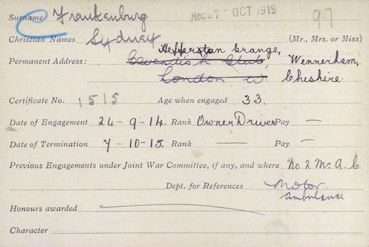 Surname Frankenburg RECD 27 OCT 1919 97
Christian Names Sydney (Mr., Mrs. or Miss)
Grange,
Permanent Address: Cavendish Club, Wennerham,
London W Cheshire
Certificate No. 1515 Age when engaged 33.
Date of Engagement 24-9-14. Rank Owner Driver Pay —
Date of Termination 7-10-15. Rank — Pay —
Previous Engagements under Joint War Committee, if any, and where No 2 M. A. C.
Dept. for References Motor
Ambulance
Honours awarded
Character